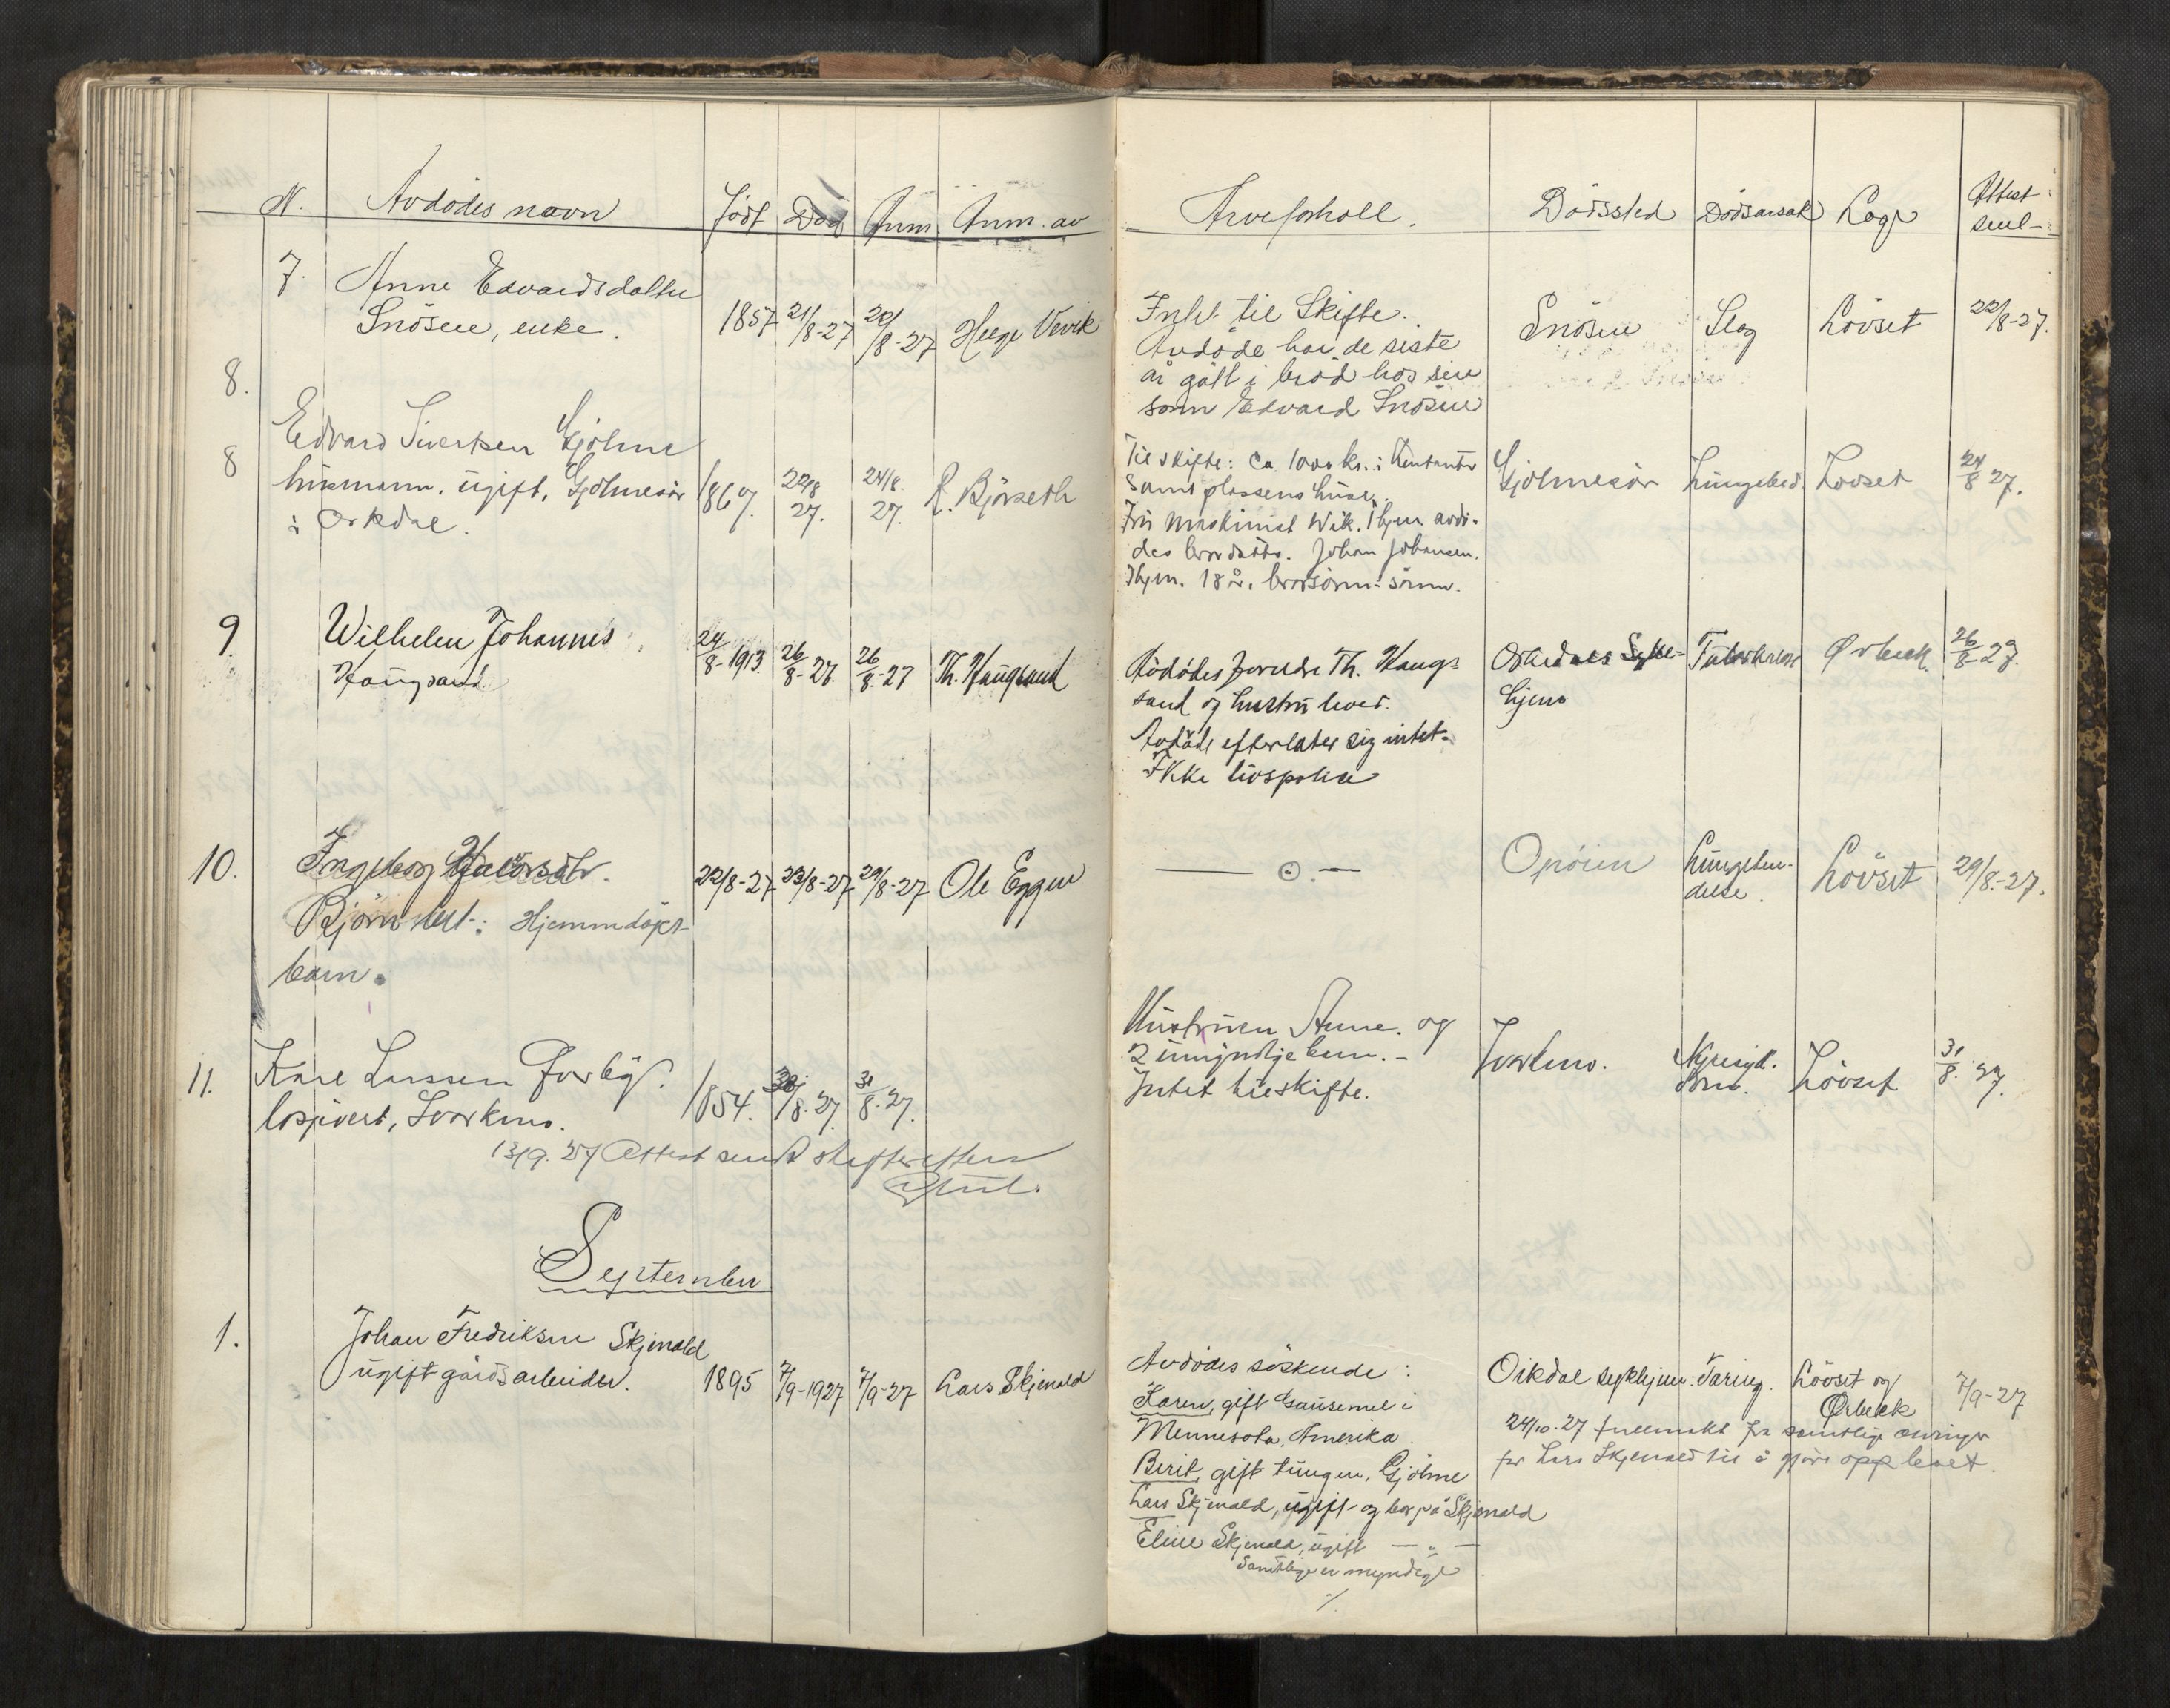 N. Avdødes navn Født Død Anm. Anm. av Arveforhold. Dødssted Dødsårsak Læge Attest send-
7. Anne Edvardsdatter
Snøsen, enke. 1857 21/8-27 22/8-27 Helge Vevik
Intet til Skifte.
Avdøde har de siste
år gått i brød hos sin
sønn Edvard Snøsen
Snøsen Slag Løvset 22/8-27.
8.
8 Edvard Sivertsen Gjølme
husmann, ugift, Gjølmesør
i Orkdal.
22/8 27. 24/8. 27. R. Bjørseth
Til skifte: ca. 1000 kr. i kontanter
samt plassens huse.
Fru maskinist Wik, Thjem. avdø-
des brordatter. Johan Johansen,
Thjem. 18 år, brorsønns sønn.
Gjølmesør Lungebet. Løvset 24/8 27.
9. Wilhelm Johannes
Haugsand.
24/8-1913. 26/8-27. 26/8-27 Th. Haugsand
Avdødes foreldre Th. Haug-
sand og hustru lever.
Avdøde efterlater sig intet.
Ikke livspolise
Orkedals Syke-
hjem
Tuberkulose Ørbeck 26/8-27.
10. Ingeborg
Bjørn Hjemmedøpt
barn.
22/8-27 23/8-27 29/8-27 Ole Eggen
— ⊙ —
Opøien
Lungebe-
delse.
Løvset 29/8-27.
11. Karl Larssen Forbyg.
losjivert, Svorkmo.
1854. 30/8-27. 31/8-27.
Hustruen Anne. og
2 umyndige barn. -
Intet til skifte.
Svorkmo.
Nyresyk-
dom.
Løvset 31/8. 27.
13/9. 27 Attest sendt skifteretten
September
1. Johan Fredriksen Skjenald
ugift gårdsarbeider. 1895 7/9-1927 7/9-27 Lars Skjenald
Avdødes søskende:
Karen, gift Gausemel i
Mennesota, Amerika
Berit, gift Tungen, Gjølme
Lars Skjenald, ugift og bor på Skjenald
Eline Skjenald, ugift — „ —
Samtlige er myndige
·/.
Orkdal sykehjem. Tæring. Løvset og
Ørbeck 7/9-27
24/10. 27 fullmakt fra samtlige arvinger
for Lars Skjenald til å gjøre opp boet.